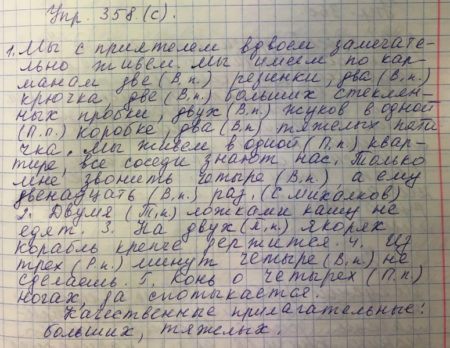 Упр. 358 (с).
1. Мы с приятелем вдвоем замечате-
льно живем. Мы имеем по кар-
манам две (В.п.) резенки, два (В.п.)
крючка, две (В.п.) больших стеклен-
ных пробки, двух (В.п.) жуков в одной
(П.п.) коробке, два (В.п.) тяжелых пати
чка. Мы живем в одной (П.п.) квар-
тире, все соседи знают нас. Только
мне звонить четыре (В.п.) а ему
двенадцать (В.п.) раз. (С. Михалков)
2. Двумя (Т.п.) ложками кашу не
едят. 3. На двух (П.п.) якорях
корабль крепче держится. 4. Из
трех (Р.п.) минут четыре (В.п.) не
сделаешь. 5. Конь о четырех (П.п.)
ногах, да спотыкается.
Качественные прилагательные:
больших, тяжелых.